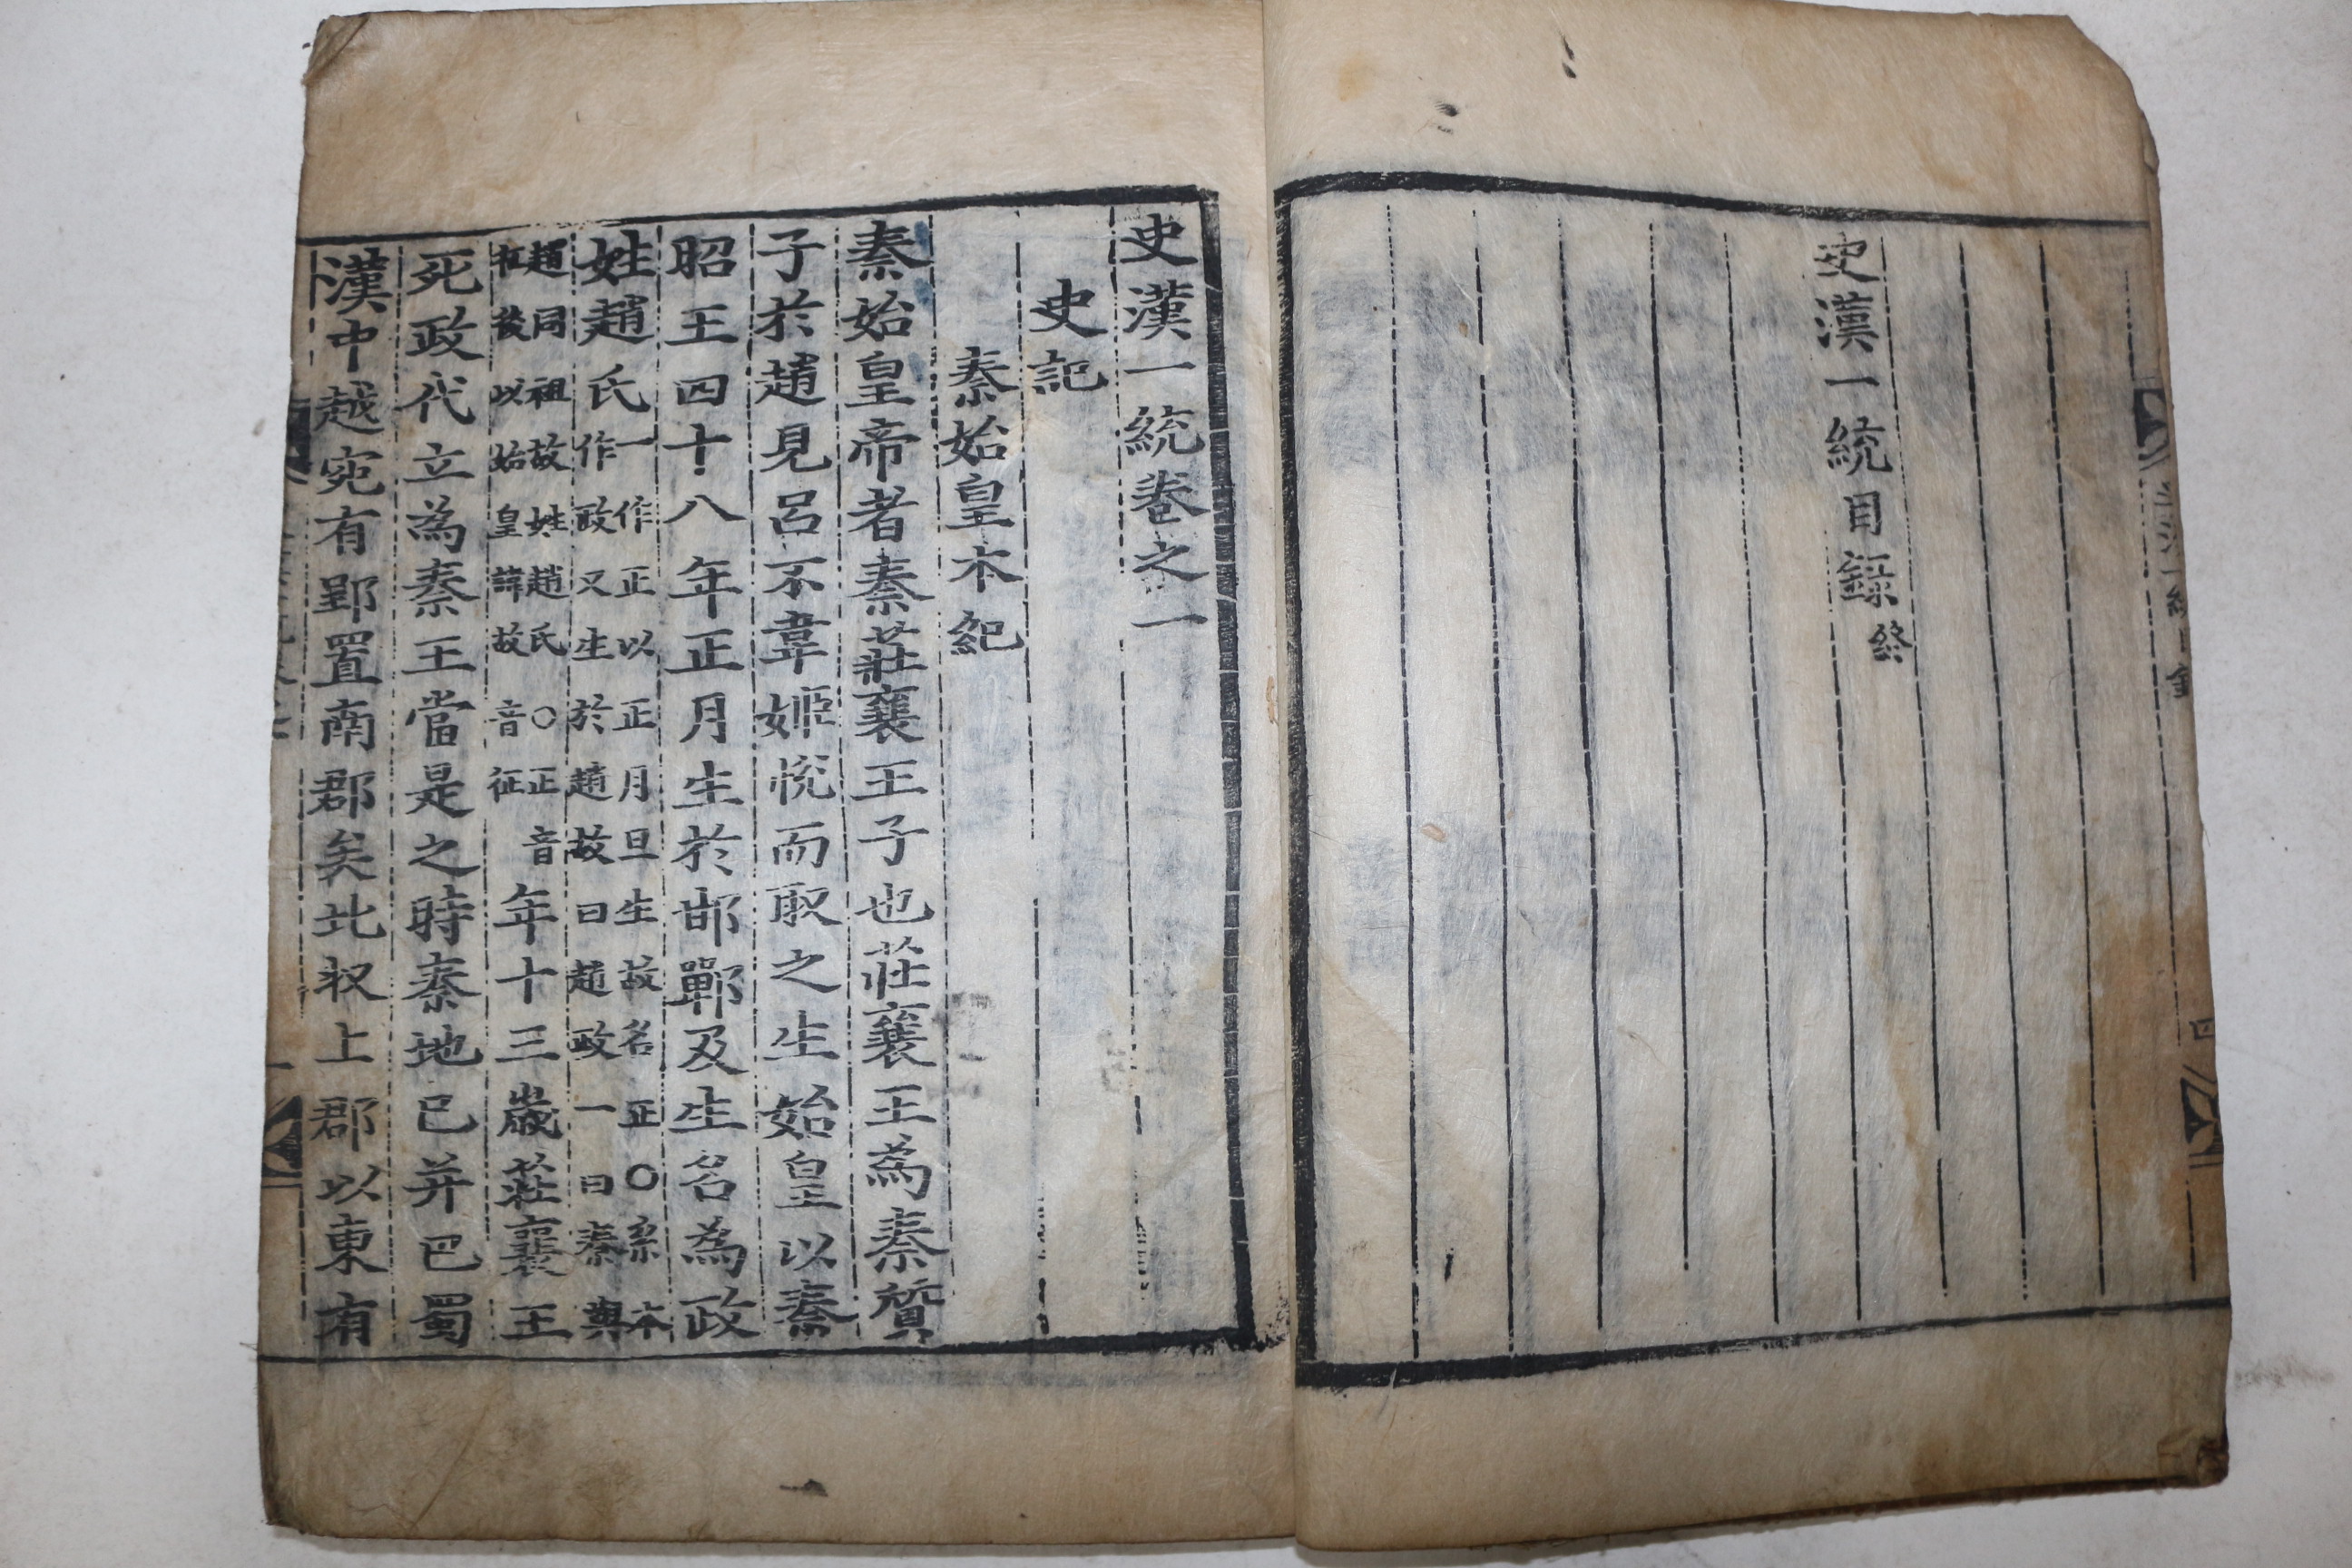 史漢一統目錄終
史漢一統卷之一
史記
秦始皇本紀
秦始皇帝者秦莊襄王子也莊襄王為秦質
子於趙見呂不韋姬悅而取之生始皇以秦
昭王四十八年正月生於邯鄲及生名為政
姓趙氏
一作正以正月旦生故名正○系本
作政又生於趙故曰趙政一曰秦與
趙同祖故姓趙氏○正音
征後以始皇諱故音征
年十三歲莊襄王
死政代立為秦王當是之時秦地已并巴蜀
漢中越宛有郢置南郡矣北収上郡以東有